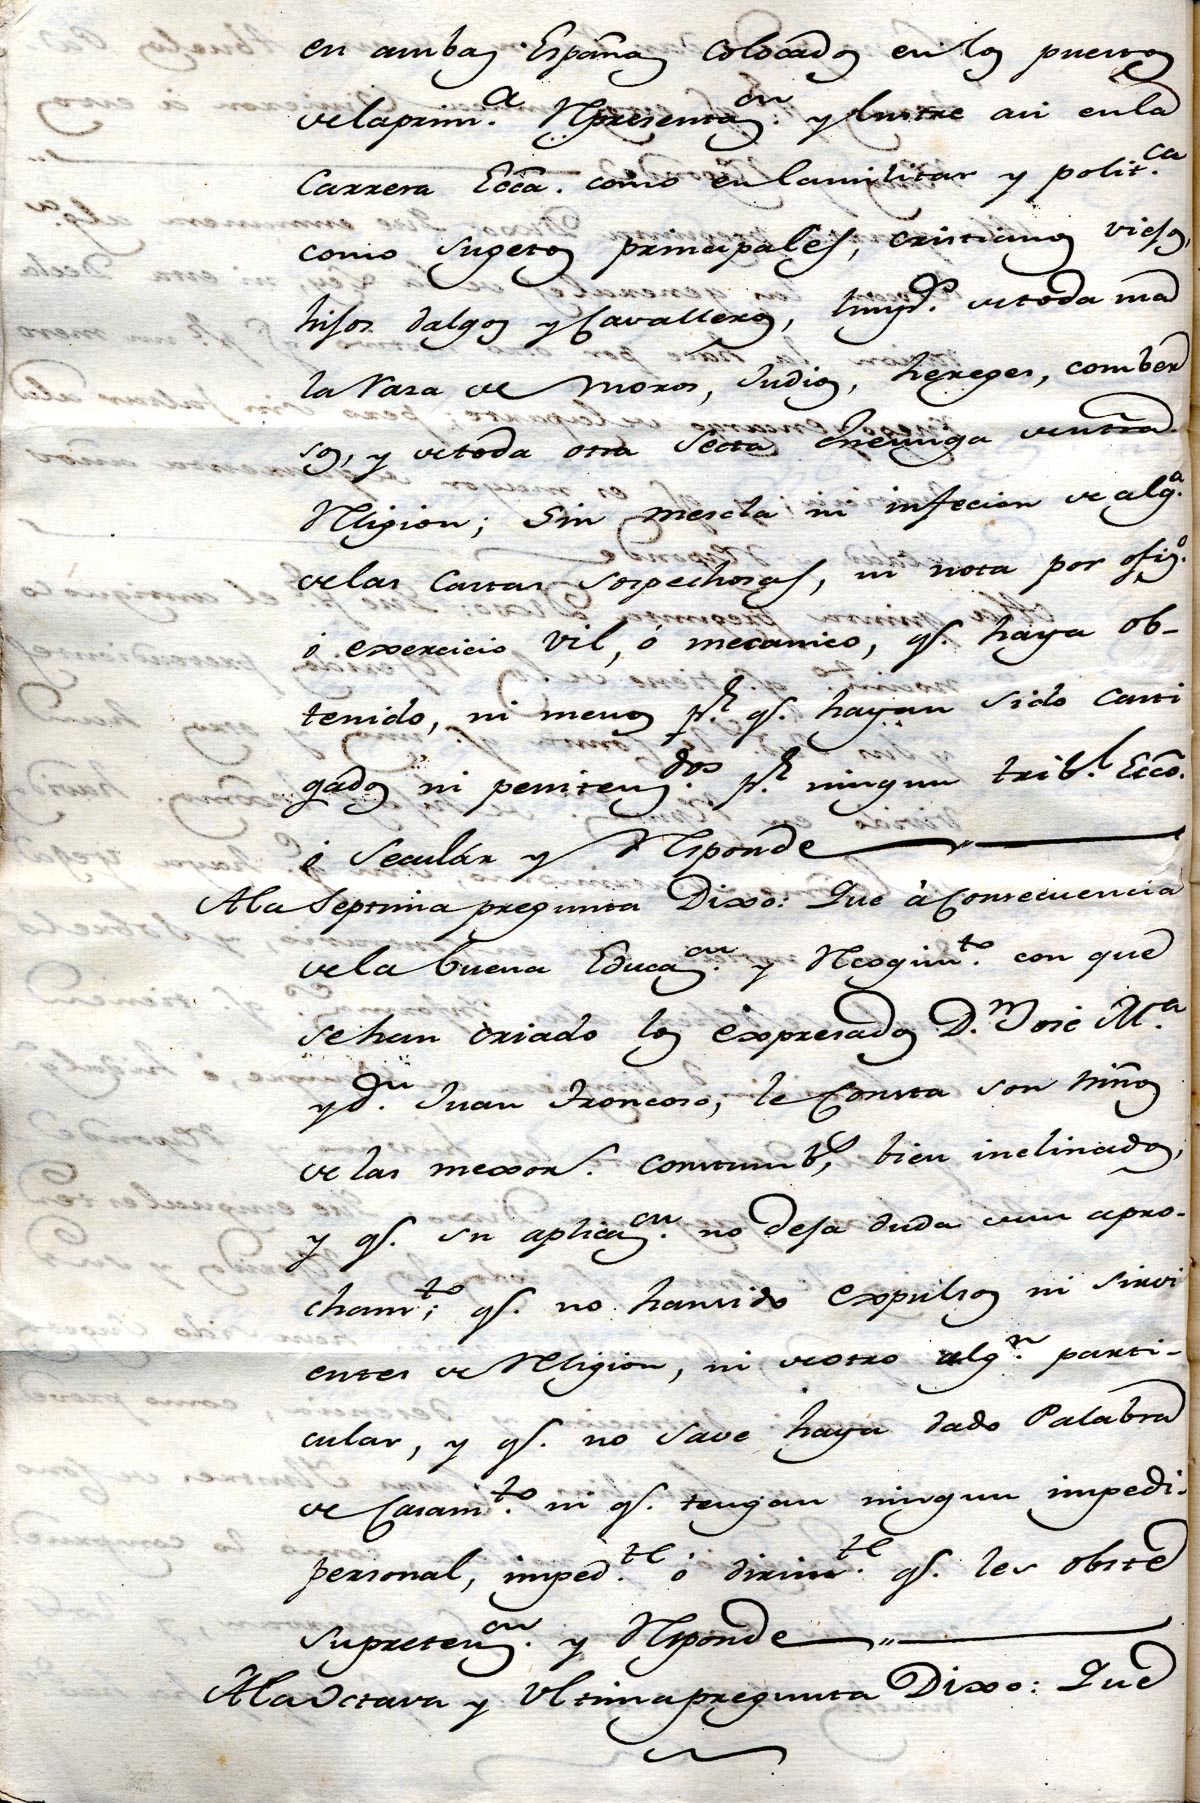 en ambas Españas colocados en los puestos
de la prim.a Representaon. y lustre asi en la
Carrera Ecca. como en la militar y polit.ca
como sugetos principales, cristianos viejos,
hijos dalgos y Cavalleros, limp.s de toda ma
la Raza de Moros, Judios, hereges, comber
sos, y de toda otra Secta enemiga de ntra.
Religion; sin mescla ni infecion de alg.a
de las Castas sospechosas, ni nota por ofi.o
ó exercicio vil, ó mecanico, qe. haya ob-
tenido, ni menos pr. qe. hayan sido casti
gados ni peniten.dos pr. ningun trib.l Ecco.
ó Secular y Responde
A la Septima pregunta Dixo: Que á consecuencia
de la buena Educaon. y Recogim.to con que
se han criado los expresados D.n José M.a
y Dn. Juan Troncoso, le consta son Niños
de las mexors. costumbs, bien inclinados,
y qe. su aplicaon. no deja duda de un apro-
cham.to; qe. no han sido expulsos ni sirvi
entes de Religion, ni de otro alg.n parti-
cular, y qe. no save haya dado Palabra
de Casam.to ni qe. tengan ningun impedi.
personal, imped.te ó dirim.te qe. les obste
su pretenon. y Responde
A la Octava y Ultima pregunta Dixo: Que